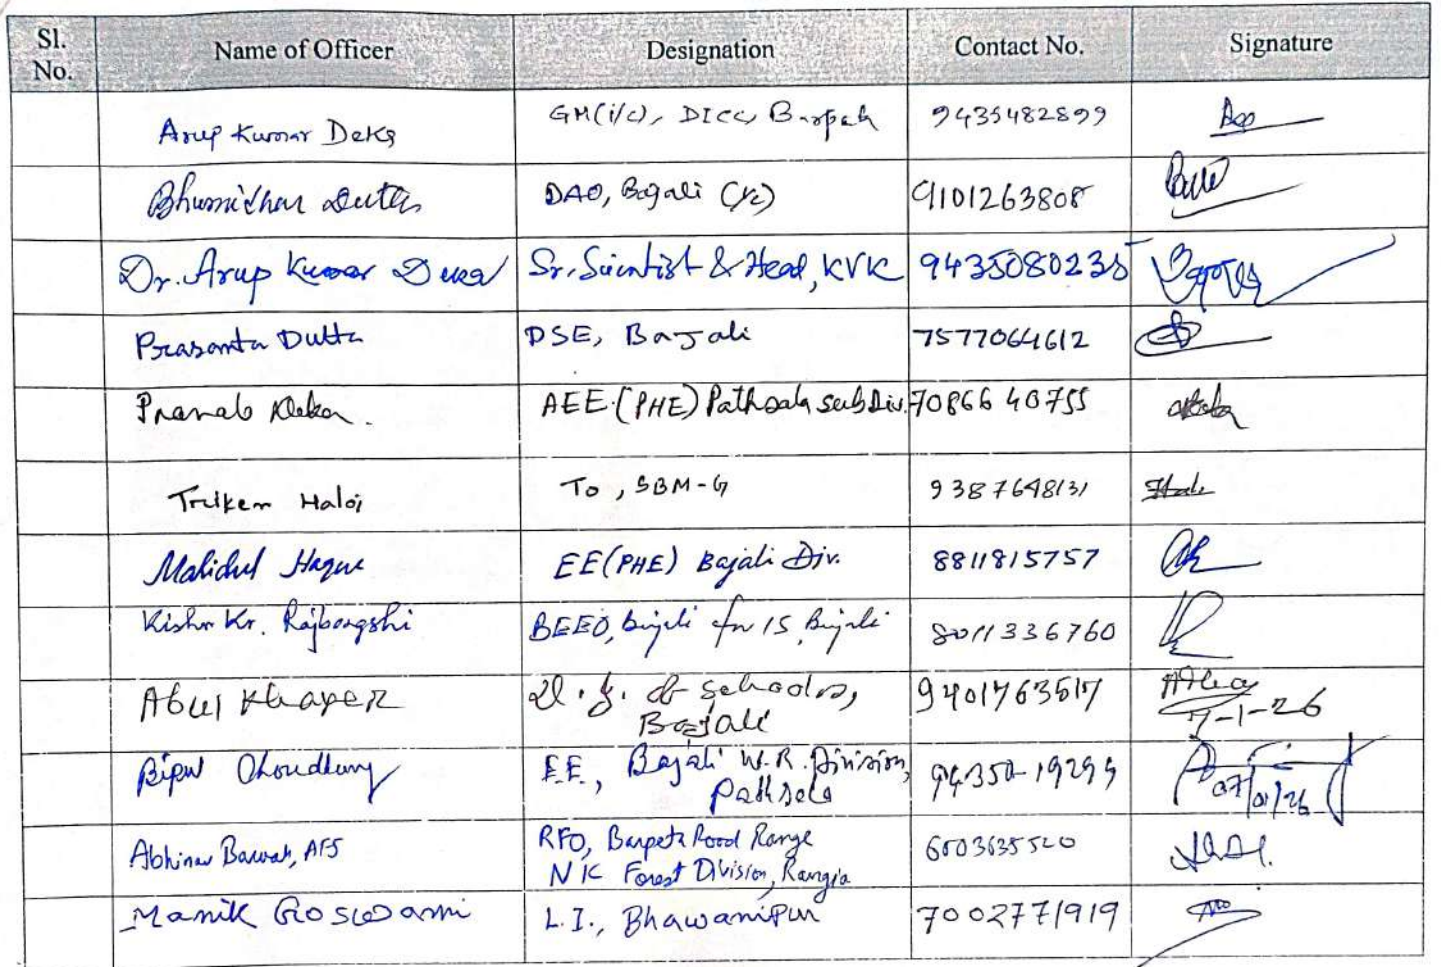 Sl. No. Name of Officer Designation Contact No. Signature
Arup Kumar Deka GM(i/c), DICC, Barpeta 9435482899
Bhumidhar Dutta DAO, Bajali (i/c) 9101263808
Dr. Arup Kumar Deka Sr. Scientist & Head, KVK 9435080235
Prasanta Dutta DSE, Bajali 7577064612
Pranab Deka. AEE.(PHE) Pathsala sub Div. 70866 40755
Haloi To, SBM-G 9387648131
Mahidul Haque EE(PHE) Bajali Div. 8811815757
Kishor Kr. Rajbongshi BEEO, Bajali for IS, Bajali 8011336760
Abul Khayer of schools, 9401763517
Bajali 7-1-26
Bipul Choudhury E.E., Bajali W.R. Division, 94350-19299
Pathsala 07/01/26
Abhinav Baruah, AFS RFO, Barpeta Road Range
NK Forest Division, Rangia
Manik Goswami L.I., Bhawanipur 7002771919